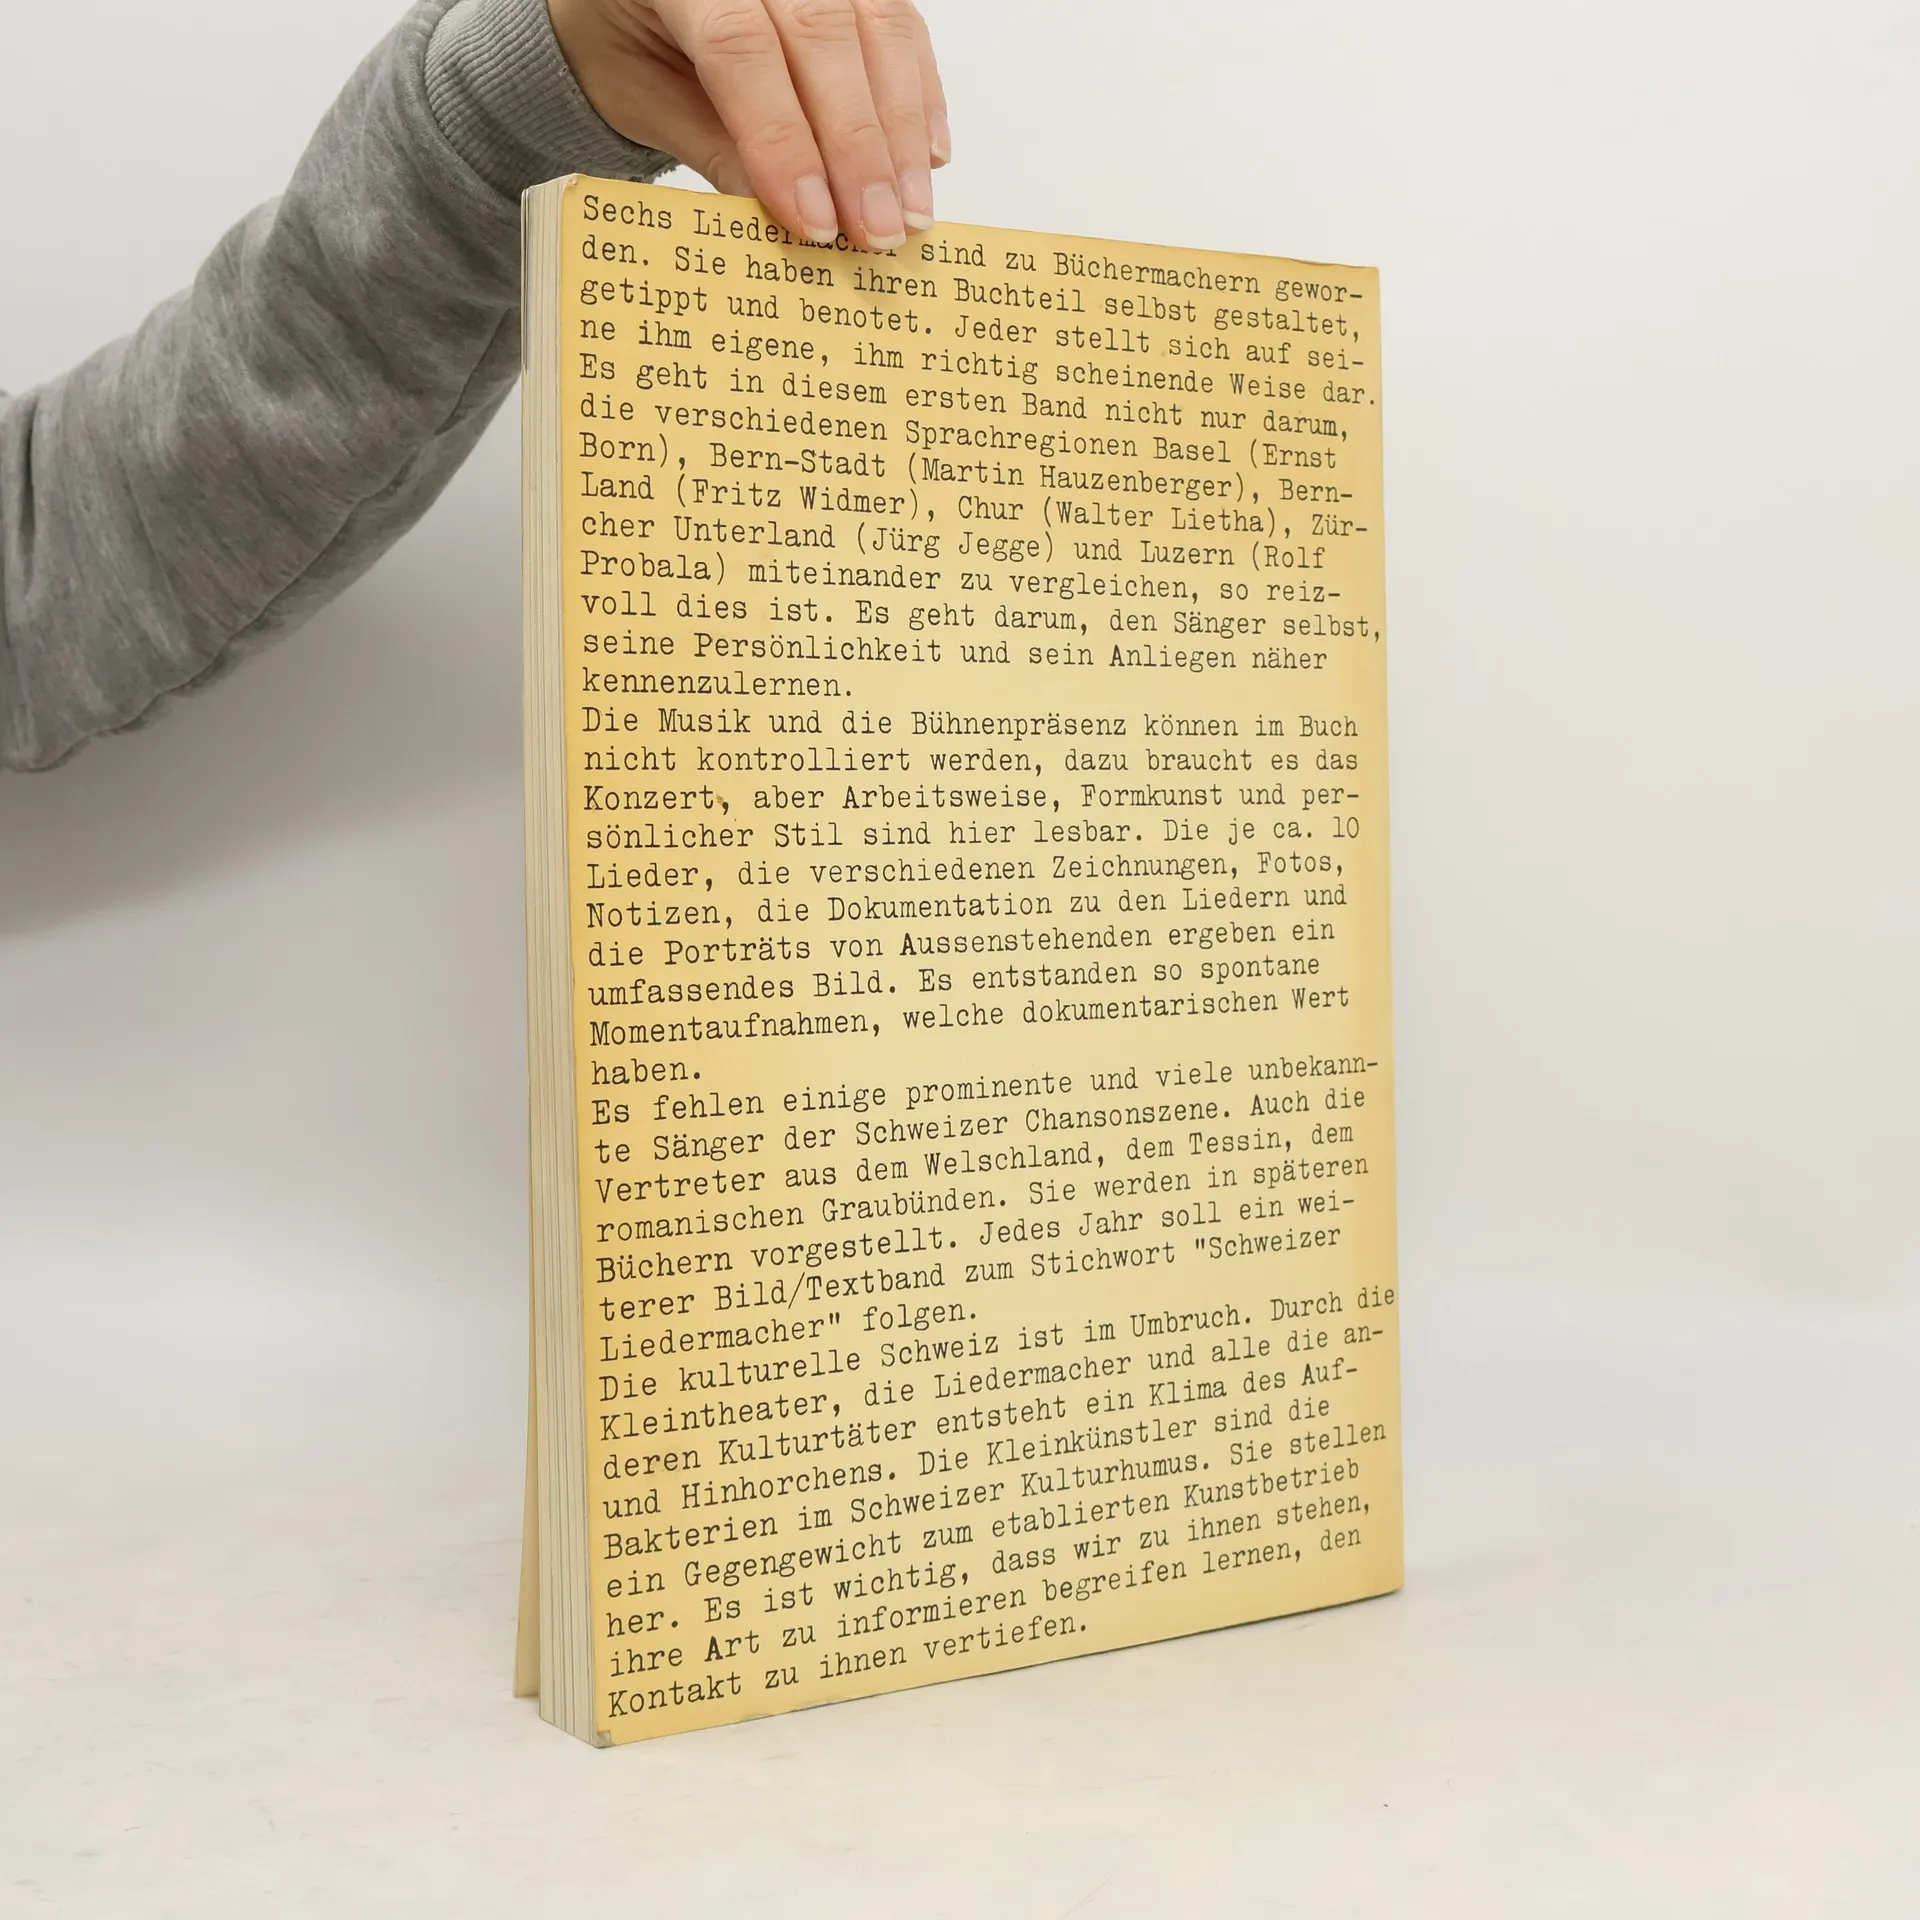 Sechs Liedermacher sind zu Büchermachern gewor-
den. Sie haben ihren Buchteil selbst gestaltet,
getippt und benotet. Jeder stellt sich auf sei-
ne ihm eigene, ihm richtig scheinende Weise dar.
Es geht in diesem ersten Band nicht nur darum,
die verschiedenen Sprachregionen Basel (Ernst
Born), Bern-Stadt (Martin Hauzenberger), Bern-
Land (Fritz Widmer), Chur (Walter Lietha), Zür-
cher Unterland (Jürg Jegge) und Luzern (Rolf
Probala) miteinander zu vergleichen, so reiz-
voll dies ist. Es geht darum, den Sänger selbst,
seine Persönlichkeit und sein Anliegen näher
kennenzulernen.
Die Musik und die Bühnenpräsenz können im Buch
nicht kontrolliert werden, dazu braucht es das
Konzert, aber Arbeitsweise, Formkunst und per-
sönlicher Stil sind hier lesbar. Die je ca. 10
Lieder, die verschiedenen Zeichnungen, Fotos,
Notizen, die Dokumentation zu den Liedern und
die Porträts von Aussenstehenden ergeben ein
umfassendes Bild. Es entstanden so spontane
Momentaufnahmen, welche dokumentarischen Wert
haben.
Es fehlen einige prominente und viele unbekann-
te Sänger der Schweizer Chansonszene. Auch die
Vertreter aus dem Welschland, dem Tessin, dem
romanischen Graubünden. Sie werden in späteren
Büchern vorgestellt. Jedes Jahr soll ein wei-
terer Bild/Textband zum Stichwort "Schweizer
Liedermacher" folgen.
Die kulturelle Schweiz ist im Umbruch. Durch die
Kleintheater, die Liedermacher und alle die an-
deren Kulturtäter entsteht ein Klima des Auf-
und Hinhorchens. Die Kleinkünstler sind die
Bakterien im Schweizer Kulturhumus. Sie stellen
ein Gegengewicht zum etablierten Kunstbetrieb
her. Es ist wichtig, dass wir zu ihnen stehen,
ihre Art zu informieren begreifen lernen, den
Kontakt zu ihnen vertiefen.